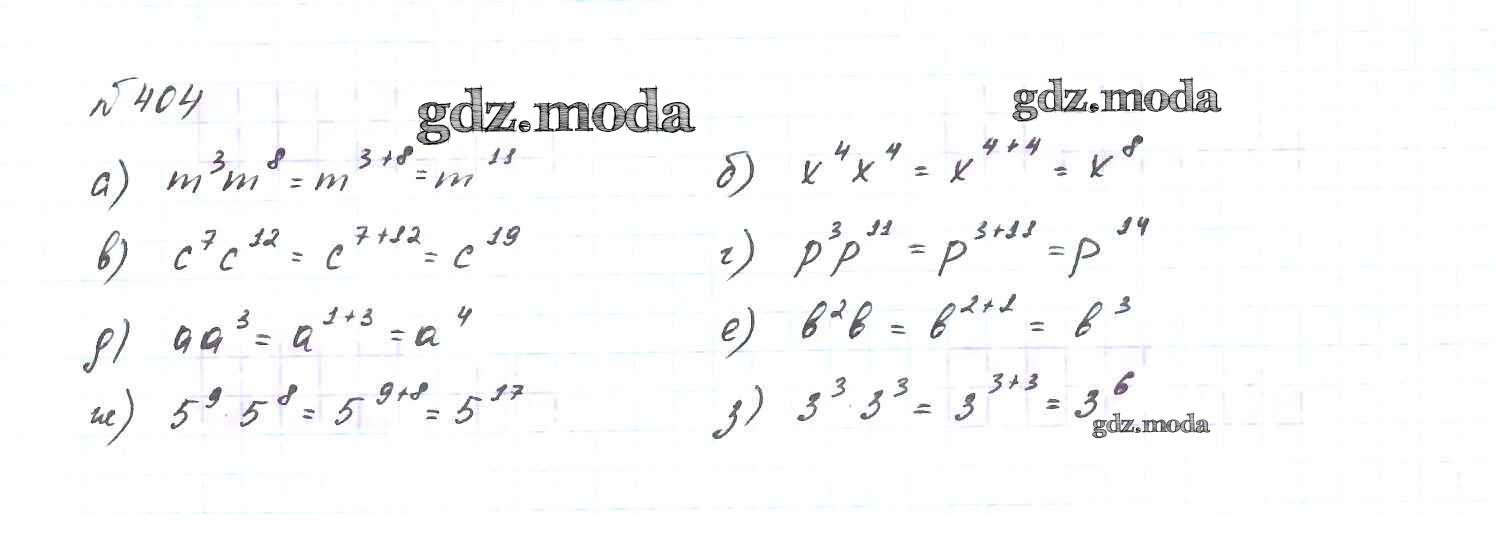 № 404
gdz.moda gdz.moda
а) m³m⁸ = m³⁺⁸ = m¹¹ б) x⁴x⁴ = x⁴⁺⁴ = x⁸
в) c⁷c¹² = c⁷⁺¹² = c¹⁹ г) p³p¹¹ = p³⁺¹¹ = p¹⁴
д) aa³ = a¹⁺³ = a⁴ е) b²b = b²⁺¹ = b³
ж) 5⁹·5⁸ = 5⁹⁺⁸ = 5¹⁷ з) 3³·3³ = 3³⁺³ = 3⁶
gdz.moda